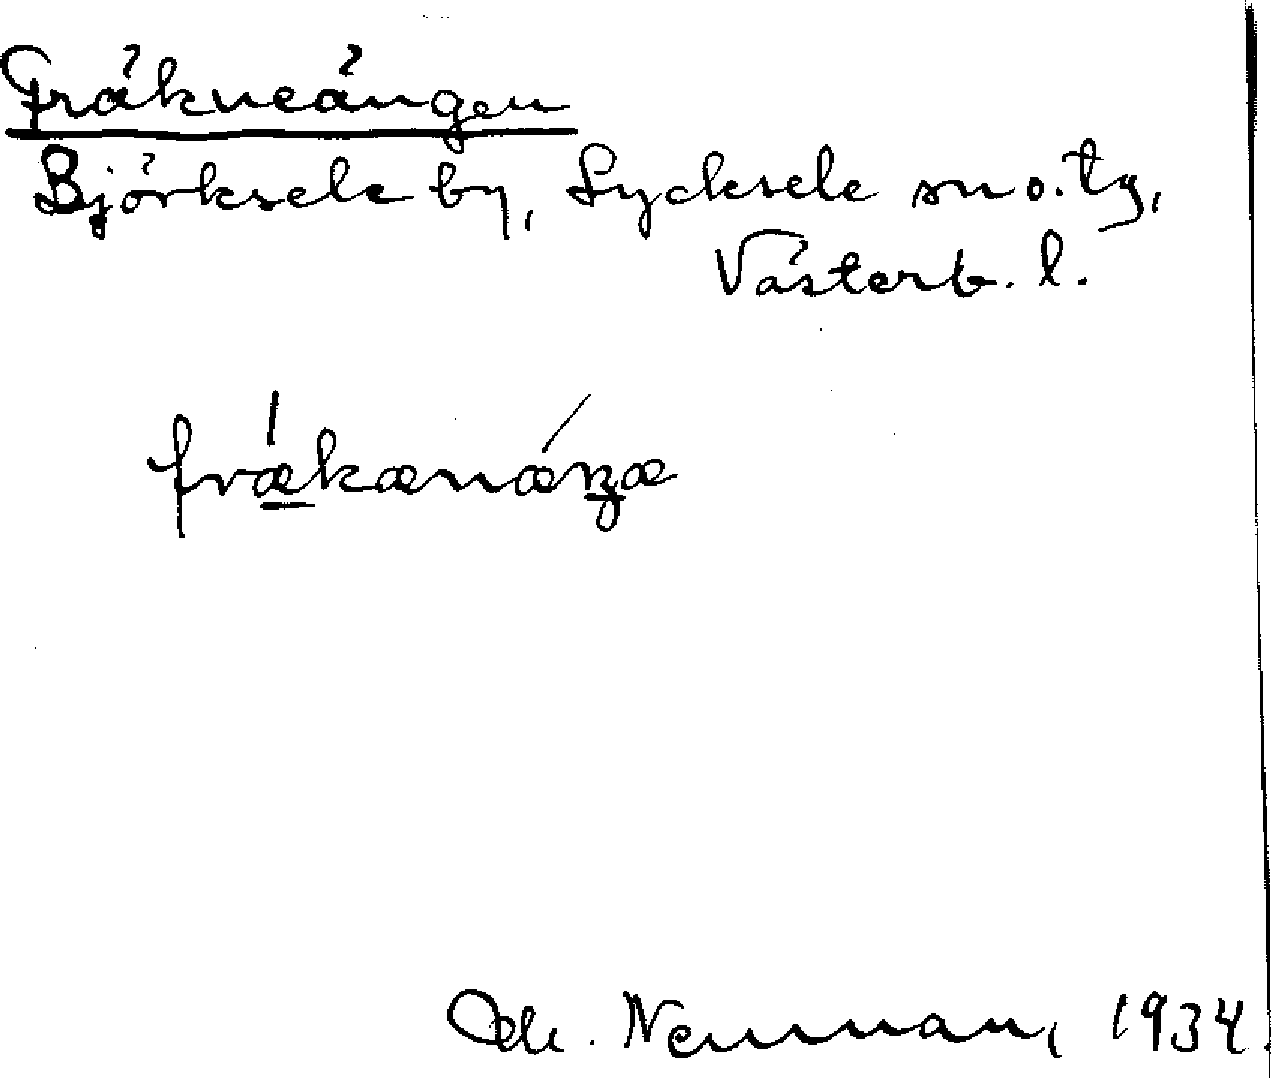 Fräkneängen
Björksele by, Lycksele sn o. tg,
Västerb. l.
frækænæŋæ
Neuman, 1934.